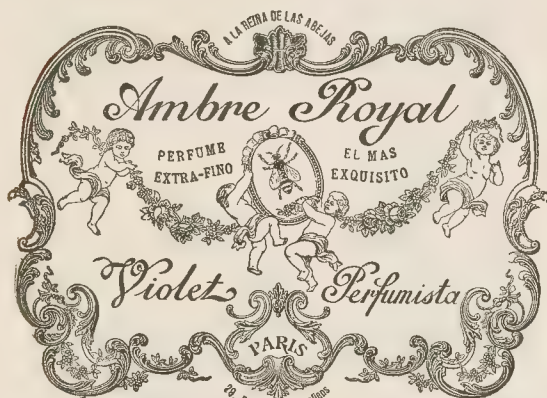 A LA REINA DE LAS ABEJAS
Ambre Royal
PERFUME
EXTRA-FINO
EL MAS
EXQUISITO
Violet
Perfumista
PARIS
29